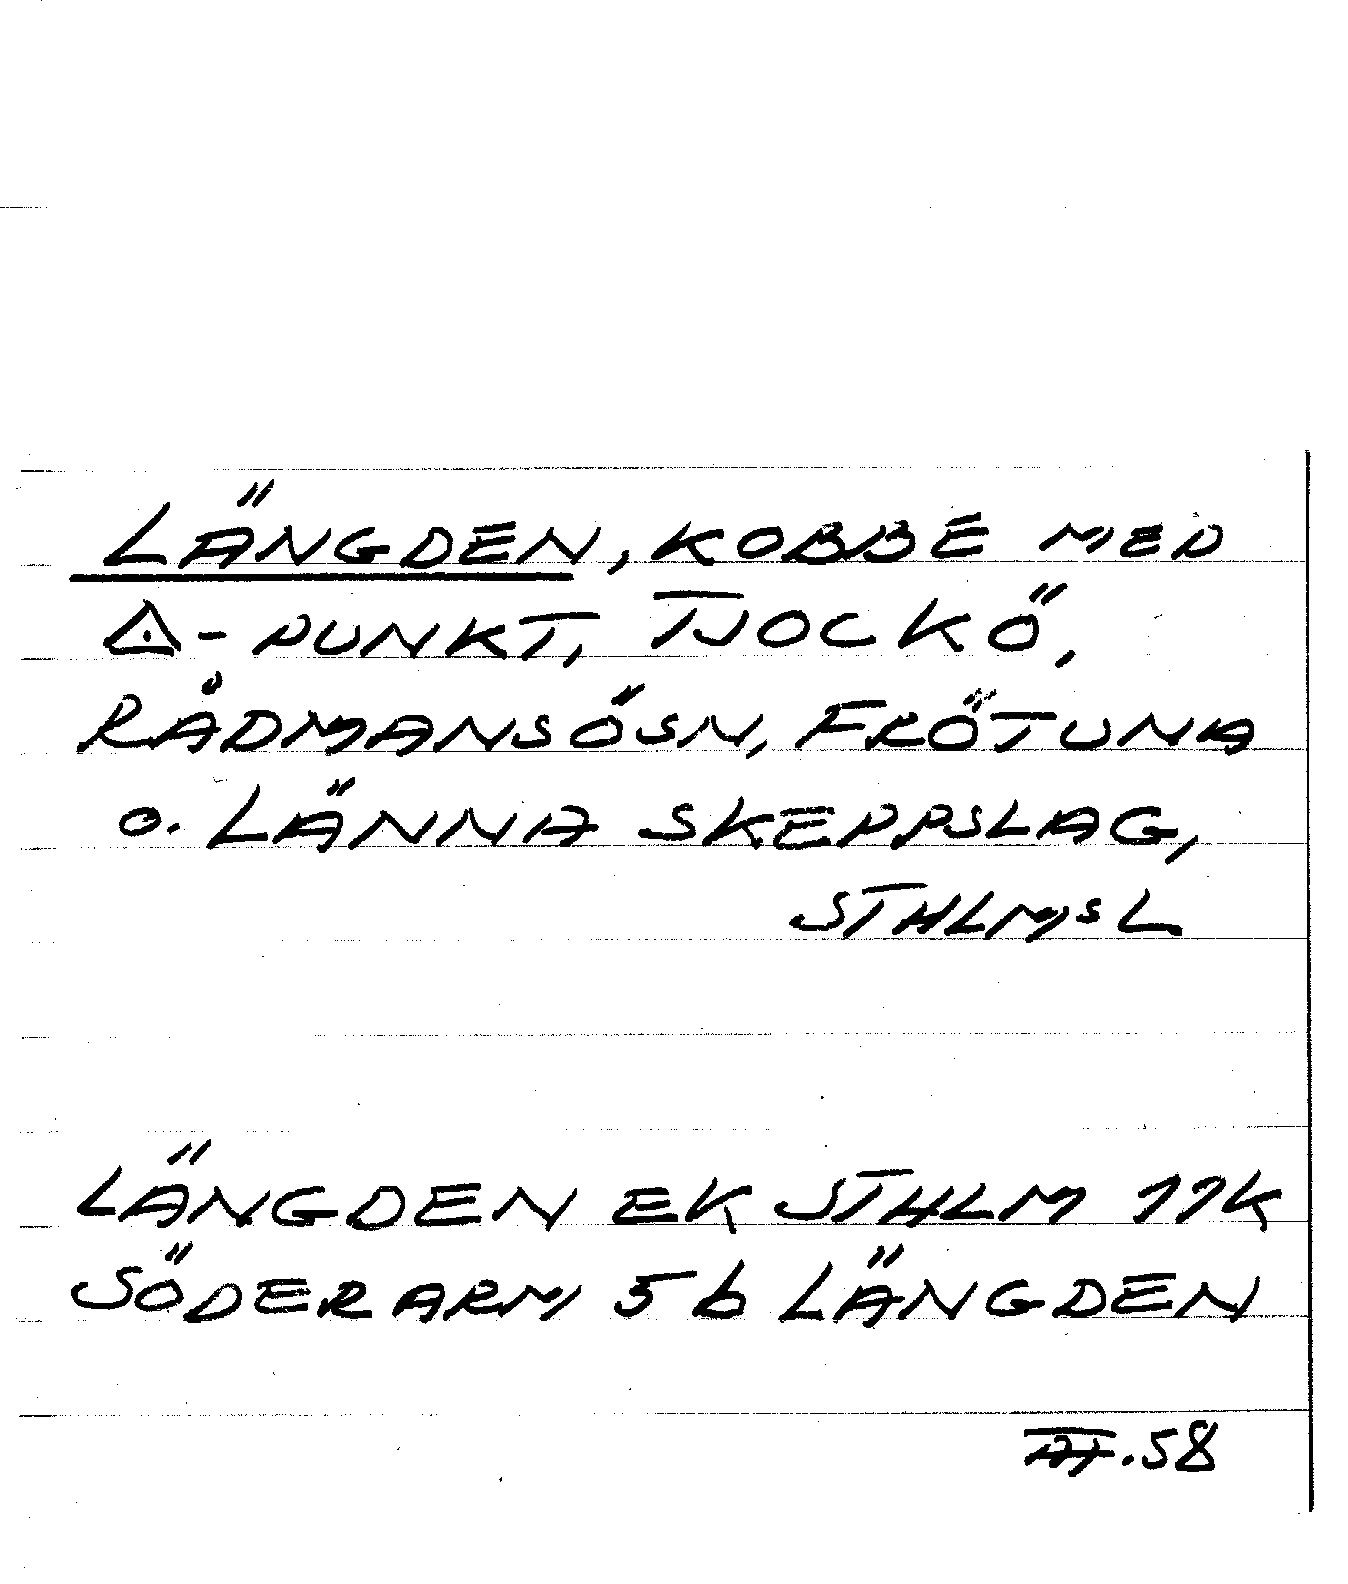 LÄNGDEN, KOBBE MED
△-PUNKT, TJOCKÖ,
RÅDMANSÖSN, FRÖTUNA
O. LÄNNA SKEPPSLAG,
STHLMSL
LÄNGDEN EK STHLM 11K
SÖDERARM 5b LÄNGDEN
.58